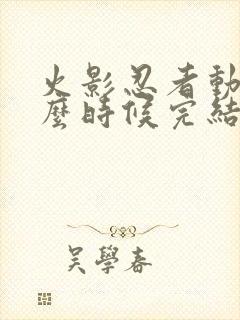 火影忍者動
麼時候完結
吳學春